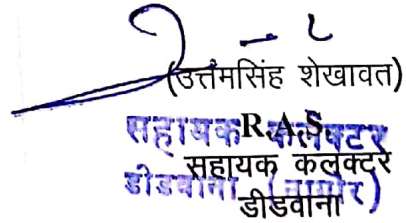 (उत्तमसिंह शेखावत)
R.A.S.
सहायक कलक्टर
सहायक कलक्टर
डीडवाना (नागौर)
डीडवाना